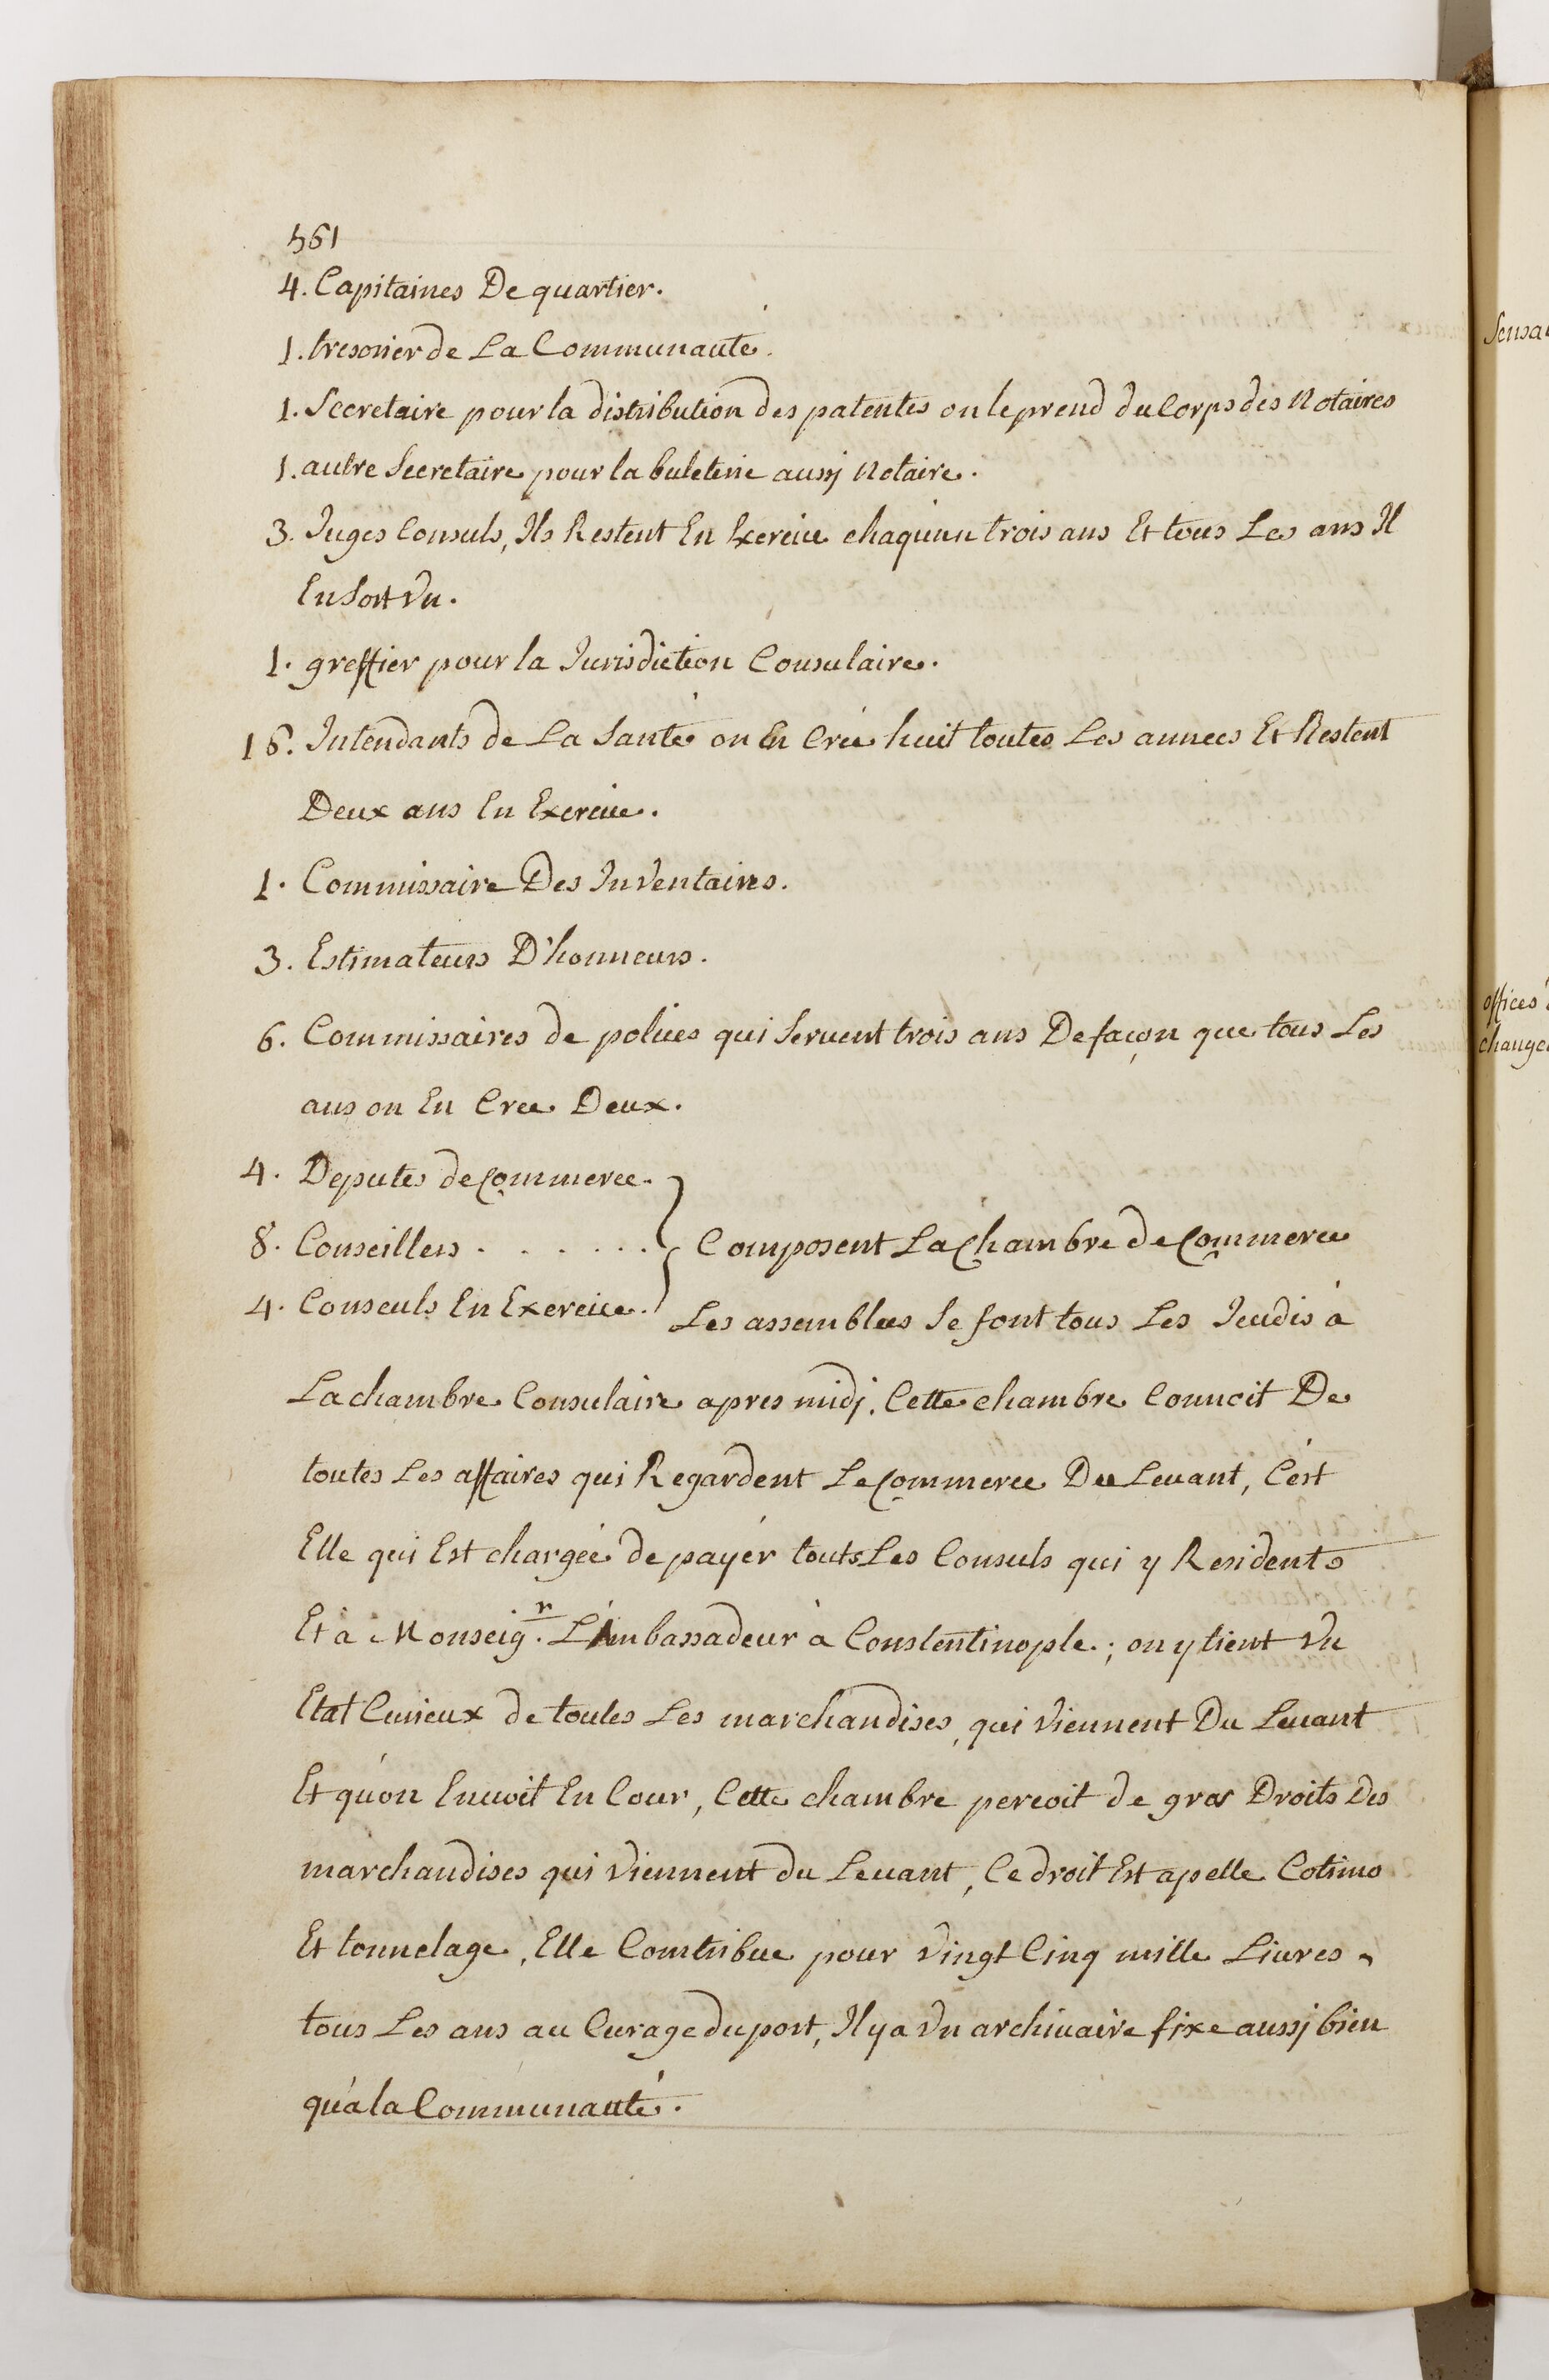 561
4. Capitaines De quartier.
1. tresorier de La Communauté.
1. Secretaire pour la distribution des patentes on le prend du Corps des Notaires
1. autre Secretaire pour la buleterie aussj Notaire.
3. Juges Consuls, Ils Restent En Exercice chaqu'un trois ans Et tous Les ans Il
En Sort Vn.
1. greffier pour la Jurisdiction Consulaire.
16. Intendants de La Santé on En Crée huit toutes Les années Et Restent
Deux ans En Exercice.
1. Commissaire Des Inventaires.
3. Estimateurs D'honneurs.
6. Commissaires de polices qui Servent trois ans De façon que tous Les
ans on En Cree Deux.
4. Deputés de Commerce.
8. Conseillers . . . . . . Composent La Chambre de Commerce
4. Conseuls En Exercice. Les assemblées Se font tous Les Jeudis à
La chambre Consulaire apres midj. Cette chambre Connoit De
toutes Les affaires qui Regardent Le Commerce Du Levant, C'est
Elle qui Est chargée de payér touts Les Consuls qui y Resident
Et à Monseigr. L'Ambassadeur à Constentinople; on y tient Vn
Etat Curieux de toutes Les marchandises, qui Viennent Du Levant
Et qu'on Envoit En Cour, Cette chambre percoit de gros Droits Des
marchandises qui Viennent du Levant, Ce droit Est apelle Cotimo
Et tonnelage, Elle Contribue pour Vingt Cinq mille Livres
tous Les ans au Curage du port, Il y a Vn archivaire fixe aussj bien
qu'a la Communauté.
offices
change